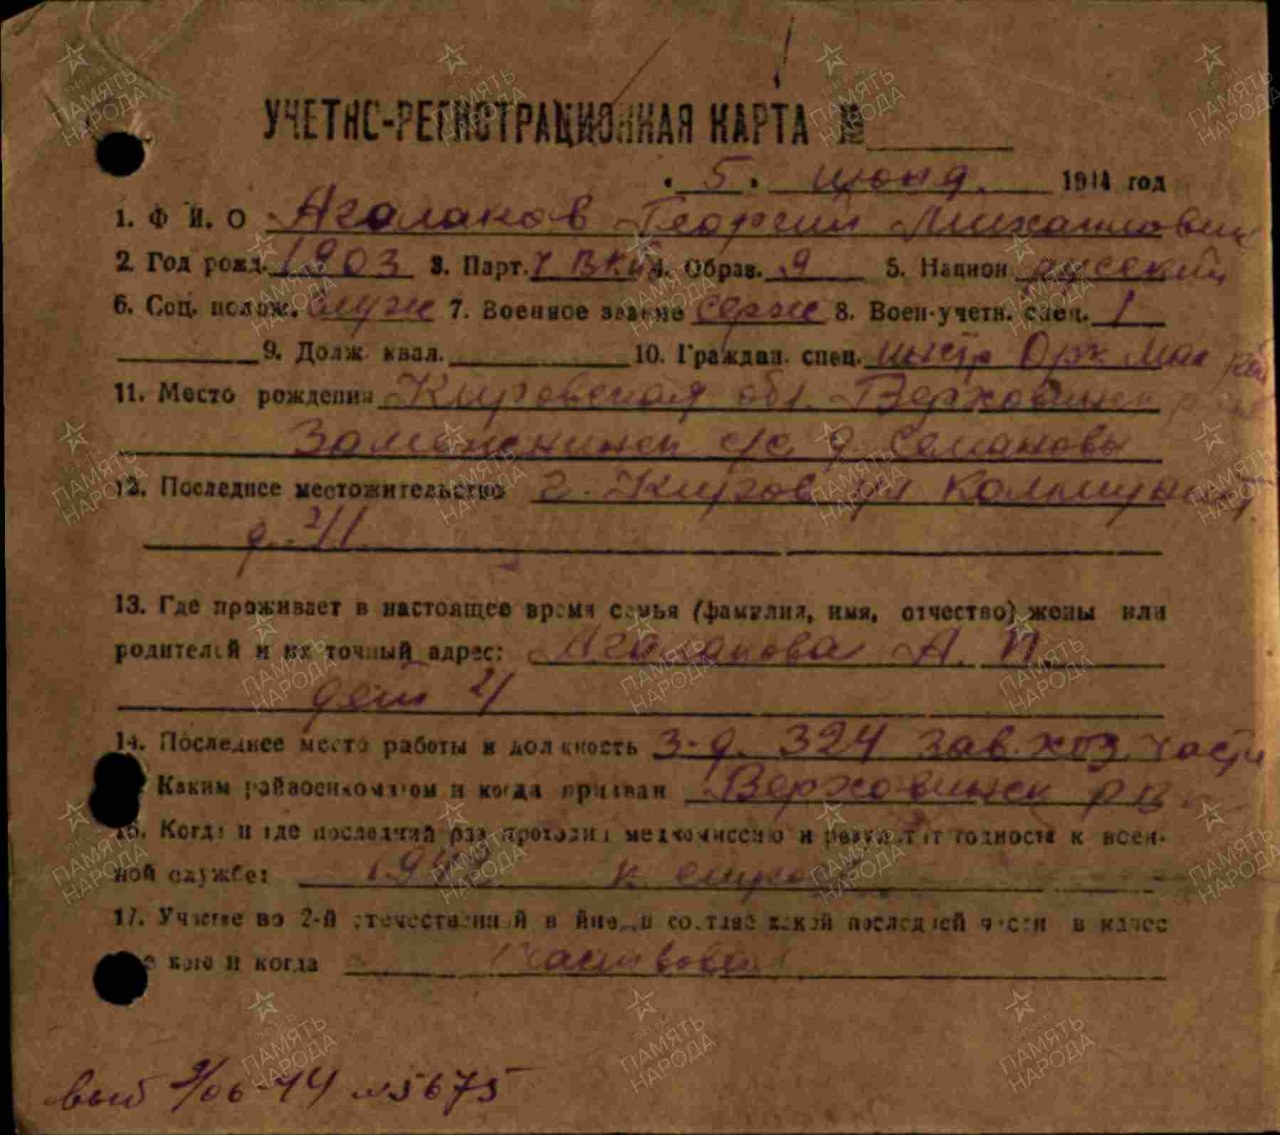 УЧЕТНО-РЕГИСТРАЦИОННАЯ КАРТА №
" 5 " июня 1944 год
1. Ф И. О Агалаков Георгий Михайлович
2. Год рожд. 1903 3. Парт. ч ВКП 4. Образ. 9 5. Национ. русский
6. Соц. полож. служ 7. Военное звание серж 8. Воен-учетн. спец. 1
9. Долж. квал. 10. Граждан. спец. инстр Орг Мас раб
11. Место рождения Кировская обл. Верховинск р
с/с д Семаковы
12. Последнее местожительство г. Киров ул Коммуны
д. 2/1
13. Где проживает в настоящее время семья (фамилия, имя, отчество) жены или
родителей и их точный адрес: Агалакова А. П.
дет 2/
14. Последнее место работы и должность з-д. 324 зав. хоз. части
Каким райвоенкоматом и когда призван Верховинск РВ
16. Когда и где последний раз проходил медкомиссию и результат годности к воен-
ной службе: 1942 к службе
17. Участие во 2-й отечественной войне, в составе какой последней части в качес
кого и когда участвовал
выб 9/06-44 №5675
ПАМЯТЬ НАРОДА